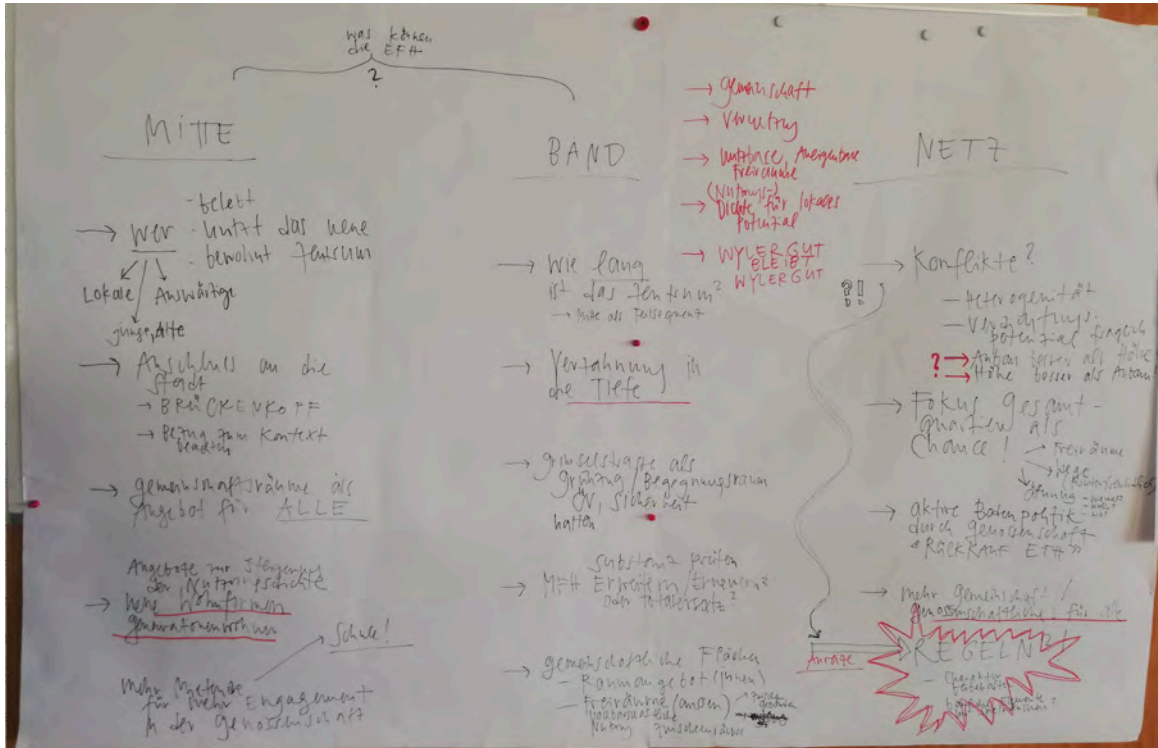 was können
die EFH
?
MITTE
- belebt
→ wer - nutzt das neue
- bewohnt Zentrum
Lokale Auswärtige
junge, Alte
→ Anschluss an die
Stadt
→ BRÜCKENKOPF
→ Bezug zum Kontext
beachten
→ gemeinschaftsräume als
Angebot für ALLE
Angebote zur Steigerung
der Nutzungsdichte
→ neue Wohnformen
generationenwohnen
Schule!
mehr Mietende
für mehr Engagement
in der genossenschaft
BAND
→ wie lang
ist das Zentrum?
→ Mitte als Teilsegment
→ Verzahnung in
die Tiefe
→ grimselstrasse als
grünzug / Begegnungsraum
ÖV, Sicherheit
halten
substanz prüfen
→ MFH Erweitern / Erneuern?
oder totalersatz?
→ gemeinschaftliche Flächen
- Raumangebot (innen)
- Freiräume (aussen)
Nutzung
→ gemeinschaft
→ Vernetzung
→ Nutzbare, Aneigenbare
Freiräume
(Nutzungs-)
→ Dichte für lokales
potenzial
→ WYLERGUT
BLEIBT
WYLERGUT
NETZ
→ Konflikte?
- Heterogenität
- Verdichtungs-
potenzial fraglich
? → Anbau besser als Höhe
→ Höhe besser als Anbau
?!!
→ Fokus Gesamt-
quartier als
Chance!
→ Freiräume
→ Wege
→ aktive Bodenpolitik
durch genossenschaft
«RÜCKKAUF EFH»
→ mehr gemeinschaft /
genossenschaftliches für alle
Anreize
REGELN?!
- Charakter